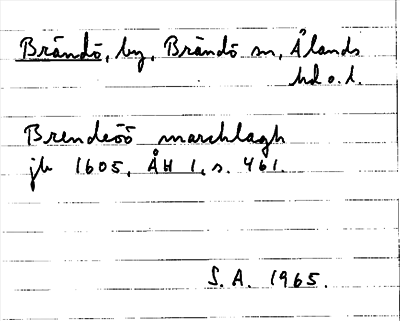 Brändö, by, Brändö sn, Ålands
hd o. l.
Brendeöö marchlagh
jb 1605, ÅH 1, s. 461.
S. A. 1965.